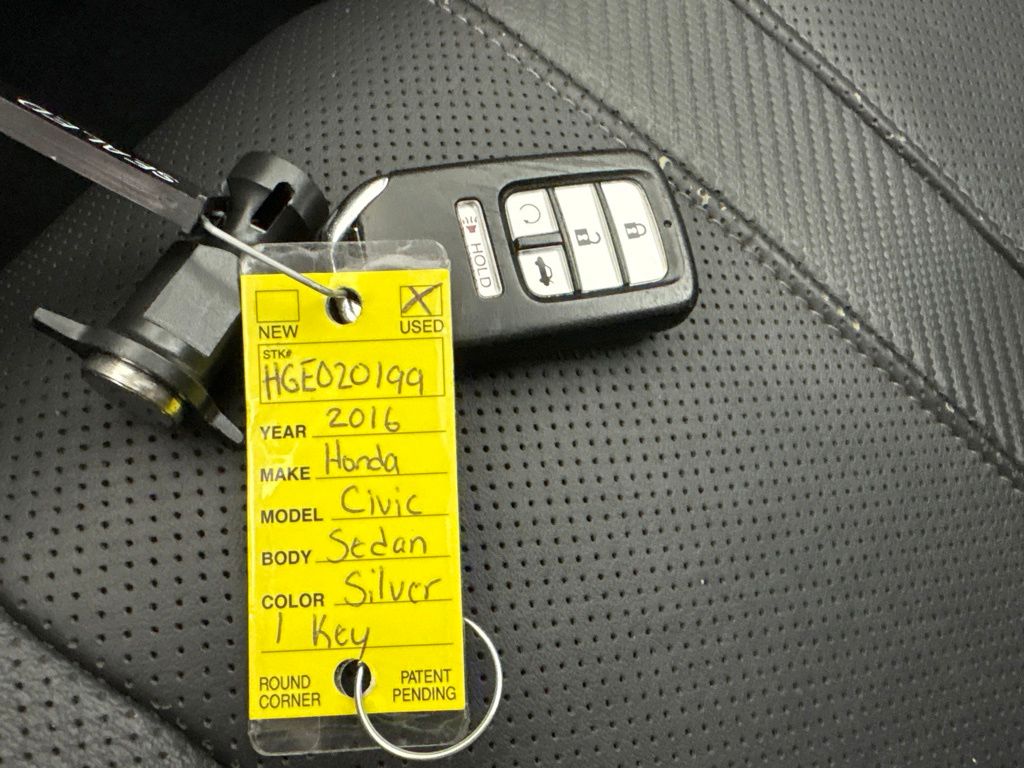 SEALED
HOLD
NEW USED
STK#
HGE020199
YEAR 2016
MAKE Honda
MODEL Civic
BODY Sedan
COLOR Silver
1 Key
ROUND CORNER
PATENT PENDING